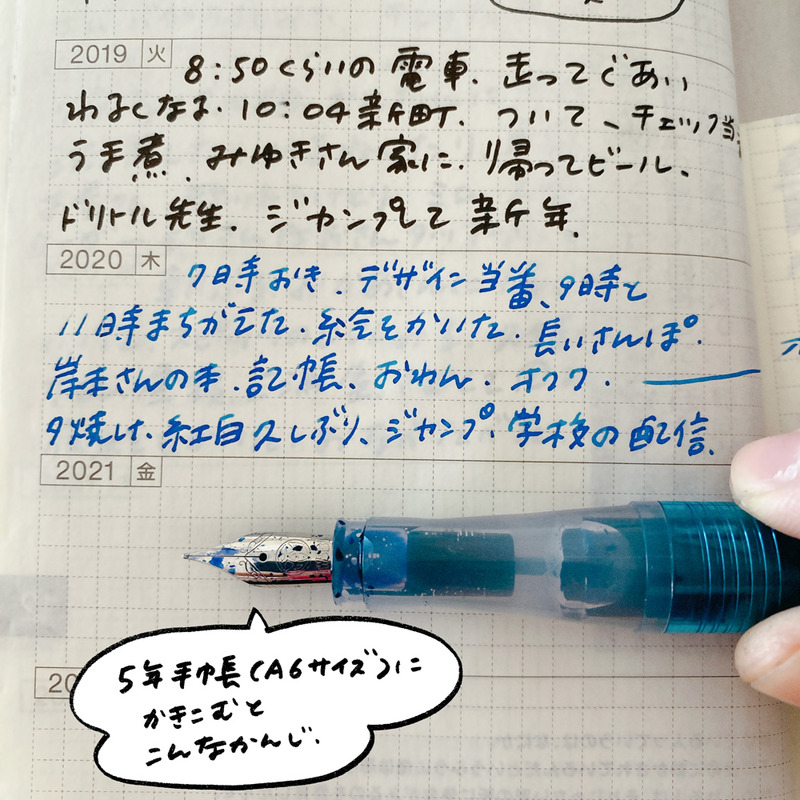 2019 火
8:50くらいの 電車. 走ってぐあい
わるくなる. 10:04新町. ついて、チェック当
うま煮、みゆきさん家に. 帰ってビール、
ドリトル先生. ジャンプして 新年.
2020 木
7時おき. デザイン当番、9時と
11時まちがえた. 絵をかいた. 長いさんぽ.
岸本さんの本. 記帳、おわん.
夕焼け. 紅白久しぶり、ジャンプ. 学校の配信.
2021 金
20
5年手帳(A6サイズ)に
かきこむと
こんなかんじ.